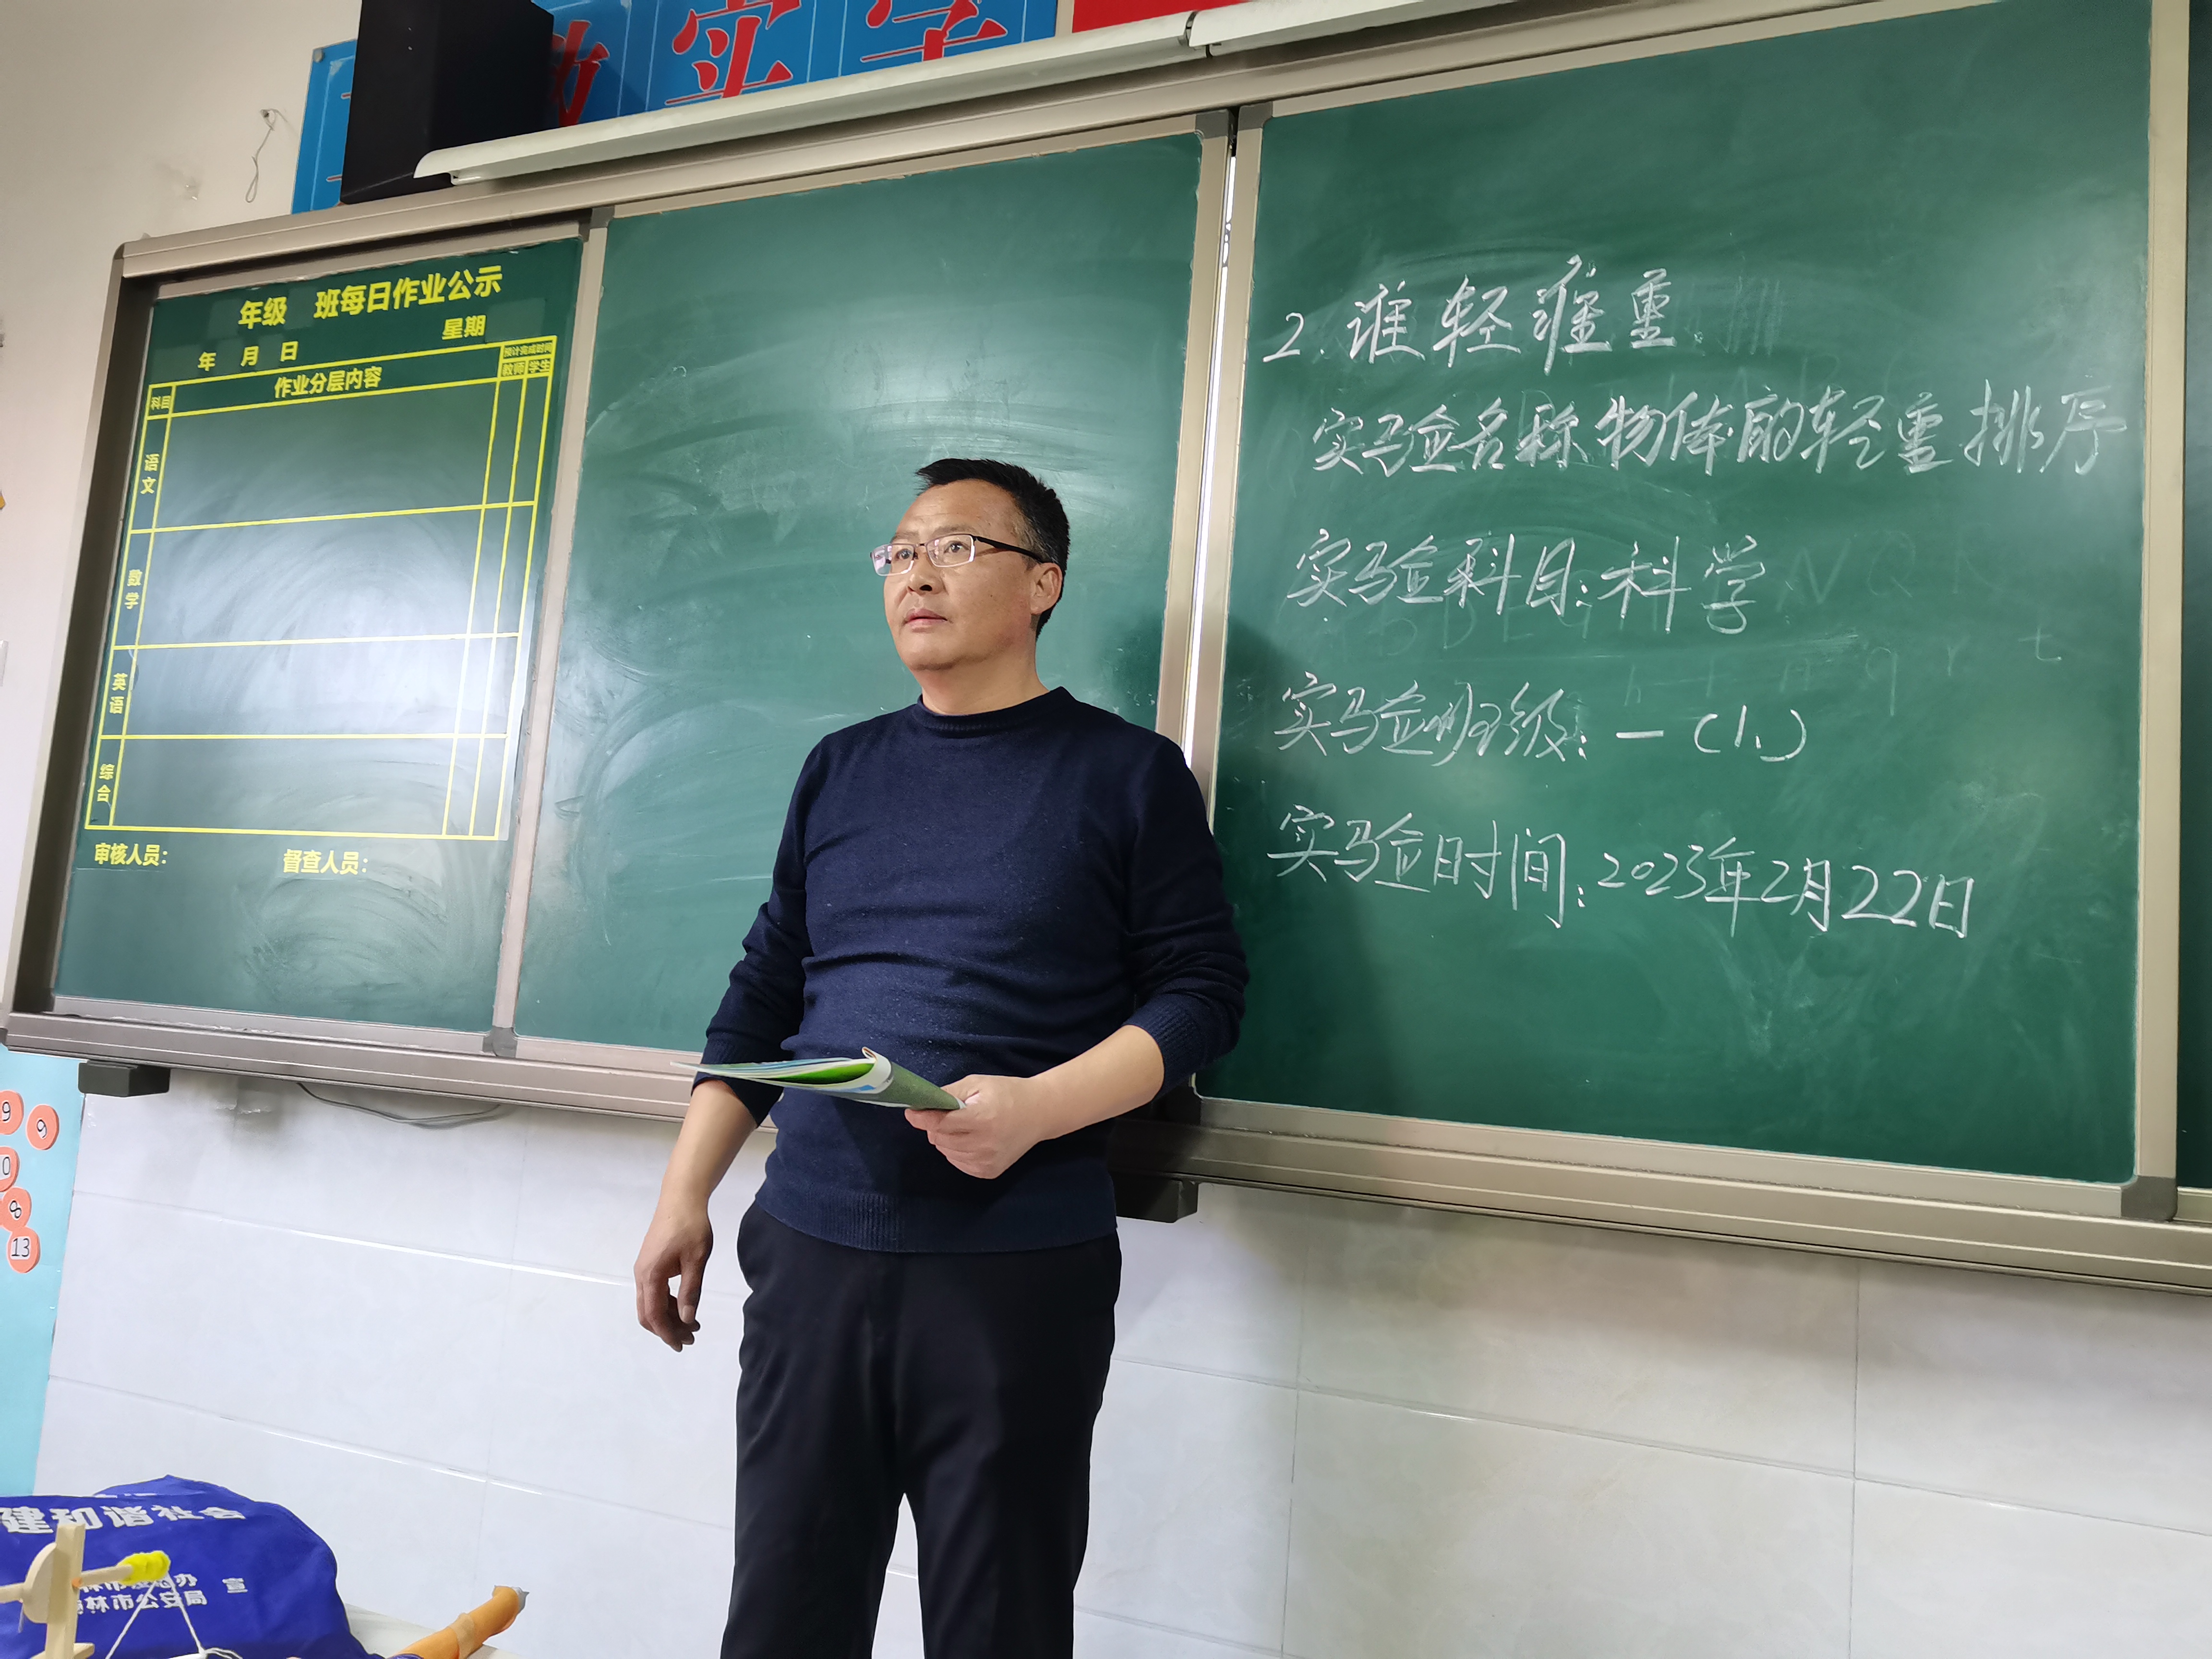 实字
年级 班每日作业公示
星期
年 月 日
预计完成时间
科目 作业分层内容 教师 学生
语文
数学
英语
综合
审核人员： 督查人员：
2.谁轻谁重
实验名称物体的轻重排序
实验科目：科学
实验班级：一（1、）
实验时间：2023年2月22日
9
9
0
8
13
建和谐社会
林市公安局 宣